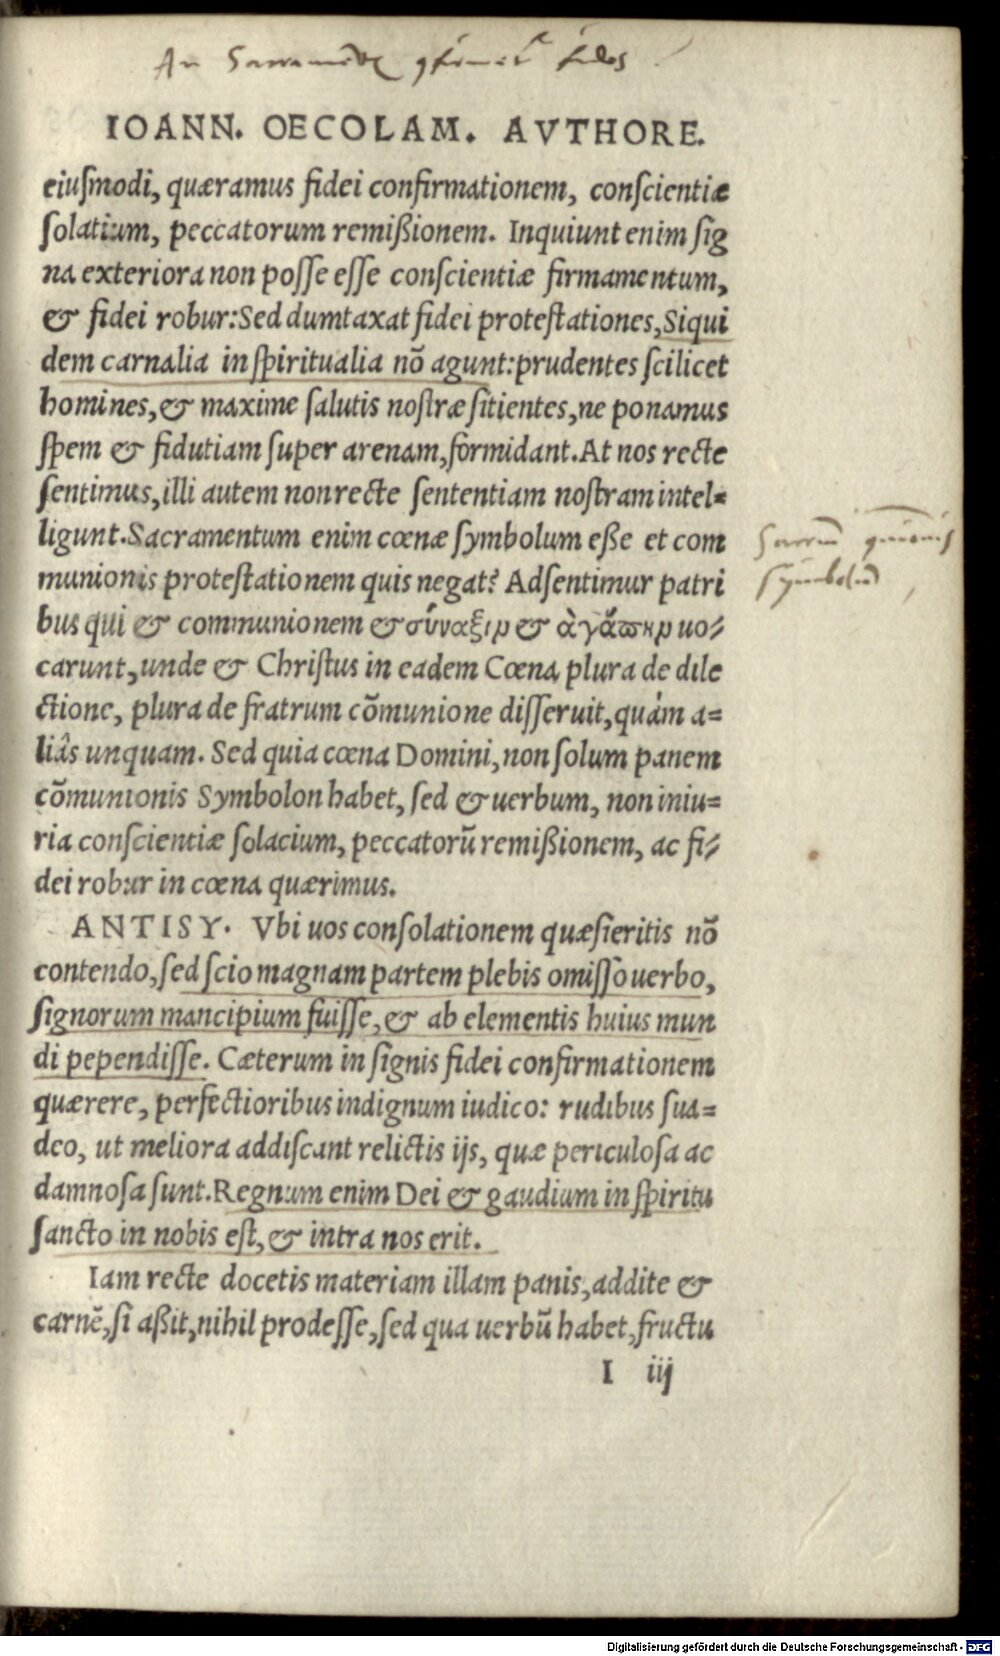 An Sacramētū 9firmet fides
IOANN. OECOLAM. AVTHORE.
eiuſmodi, quæramus fidei confirmationem, conſcientiæ
ſolatium, peccatorum remißionem. Inquiunt enim ſig
na exteriora non poſſe eſſe conſcientiæ firmamentum,
& fidei robur: Sed dumtaxat fidei proteſtationes, Siqui
dem carnalia in ſpiritualia nõ agunt: prudentes ſcilicet
homines, & maxime ſalutis noſtræ ſitientes, ne ponamus
ſpem & fidutiam ſuper arenam, formidant. At nos recte
ſentimus, illi autem non recte ſententiam noſtram intel=
ligunt. Sacramentum enim cœnæ ſymbolum eße et com
munionis proteſtationem quis negat? Adſentimur patri
bus qui & communionem & σύναξιμ & ἀγάπημ uo=
carunt, unde & Chriſtus in eadem Cœna plura de dile
ctione, plura de fratrum cõmunione diſſeruit, quàm a=
liâs unquam. Sed quia cœna Domini, non ſolum panem
cõmunionis Symbolon habet, ſed & uerbum, non iniu=
ria conſcientiæ ſolacium, peccatorũ remißionem, ac fi=
dei robur in cœna quærimus.
ANTISY. Vbi uos conſolationem quæſieritis nõ
contendo, ſed ſcio magnam partem plebis omiſſo uerbo,
ſignorum mancipium fuiſſe, & ab elementis huius mun
di pependiſſe. Cæterum in ſignis fidei confirmationem
quærere, perfectioribus indignum iudico: rudibus ſua=
deo, ut meliora addiſcant relictis ijs, quæ periculoſa ac
damnoſa ſunt. Regnum enim Dei & gaudium in ſpiritu
ſancto in nobis eſt, & intra nos erit.
Iam recte docetis materiam illam panis, addite &
carnē, ſi aßit, nihil prodeſſe, ſed qua uerbũ habet, fructu
I iij
ſymbolū
Digitalisierung gefördert durch die Deutsche Forschungsgemeinschaft - DFG